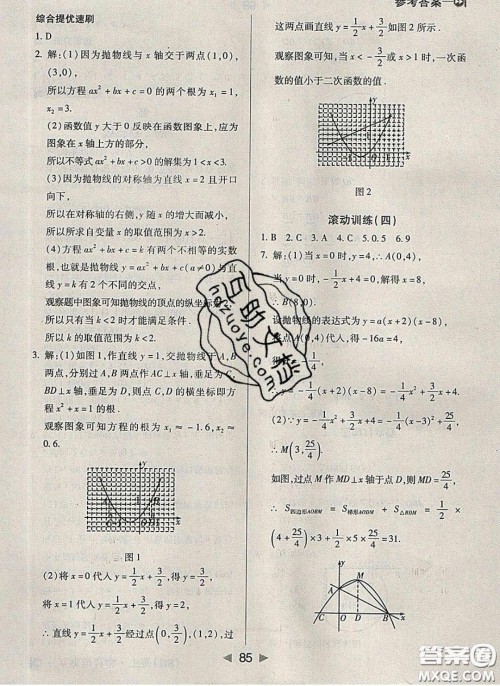 参考答案
综合提优速刷
1. D
2. 解:(1)因为抛物线与 x 轴交于两点(1,0),
(3,0),
所以方程 ax²+bx+c=0 的两个根为 x₁=1,
x₂=3.
(2)函数值 y 大于 0 反映在函数图象上,应为
图象在 x 轴上方的部分.
所以不等式 ax²+bx+c>0 的解集为 1<x<3.
(3)因为抛物线的对称轴为直线 x=2 且开口
向下,
所以在对称轴的右侧,y 随 x 的增大而减小.
所以所求自变量 x 的取值范围为 x>2.
(4)方程 ax²+bx+c=k 有两个不相等的实数
根,也就是抛物线 y=ax²+bx+c(a≠0)与直线
y=k 有 2 个不同的交点,
观察题中图象可知抛物线的顶点的纵坐标
所以只有当 k<2 时才满足条件.
所以 k 的取值范围为 k<2.
3. 解:(1)如图 1,作直线 y=1,交抛物线于 A,B
两点,分别过 A,B 两点,作 AC⊥x 轴,垂足为 C,
BD⊥x 轴,垂足为 D,则点 C,D 的横坐标即方
程 x²+x=1 的根.
观察图象可知方程的根为 x₁≈-1.6,x₂≈
0.6.
y
x
图 1
(2)将 x=0 代入 y=1/2x+3/2,得 y=3/2,
将 x=1 代入 y=1/2x+3/2,得 y=2,
∴ 直线 y=1/2x+3/2 经过点(0,3/2),(1,2),过
这两点画直线 y=1/2x+3/2,如图 2.
观察图象可知,当 x<-1 或 x>3/2 时,一次函
数的值小于二次函数的值.
y
x
图 2
滚动训练(四)
1. B 2. C 3. A 4. C 5. 0.5 6. 9
7. 解:(1)当 x=0 时,y=4,∴ A(0,4),
当 y=0 时,-1/2x+4=0,解得 x=8.
∴ B(8,0).
设抛物线的表达式为 y=a(x+2)(x-8),
(2)∵ y=-1/4x²+3/2x+4=-1/4(x-3)²+25/4,
∴ M(3,25/4).
如图,过点 M 作 MD⊥x 轴于点 D,则 MD=25/4,
∴ S四边形AOBM=S梯形AODM+S△BDM=1/2×
(4+25/4)×3+1/2×5×25/4=31.
y
A
M
O
D
B
x
85
互助文档
hdzuoye.com
答案圈
MXQE.COM